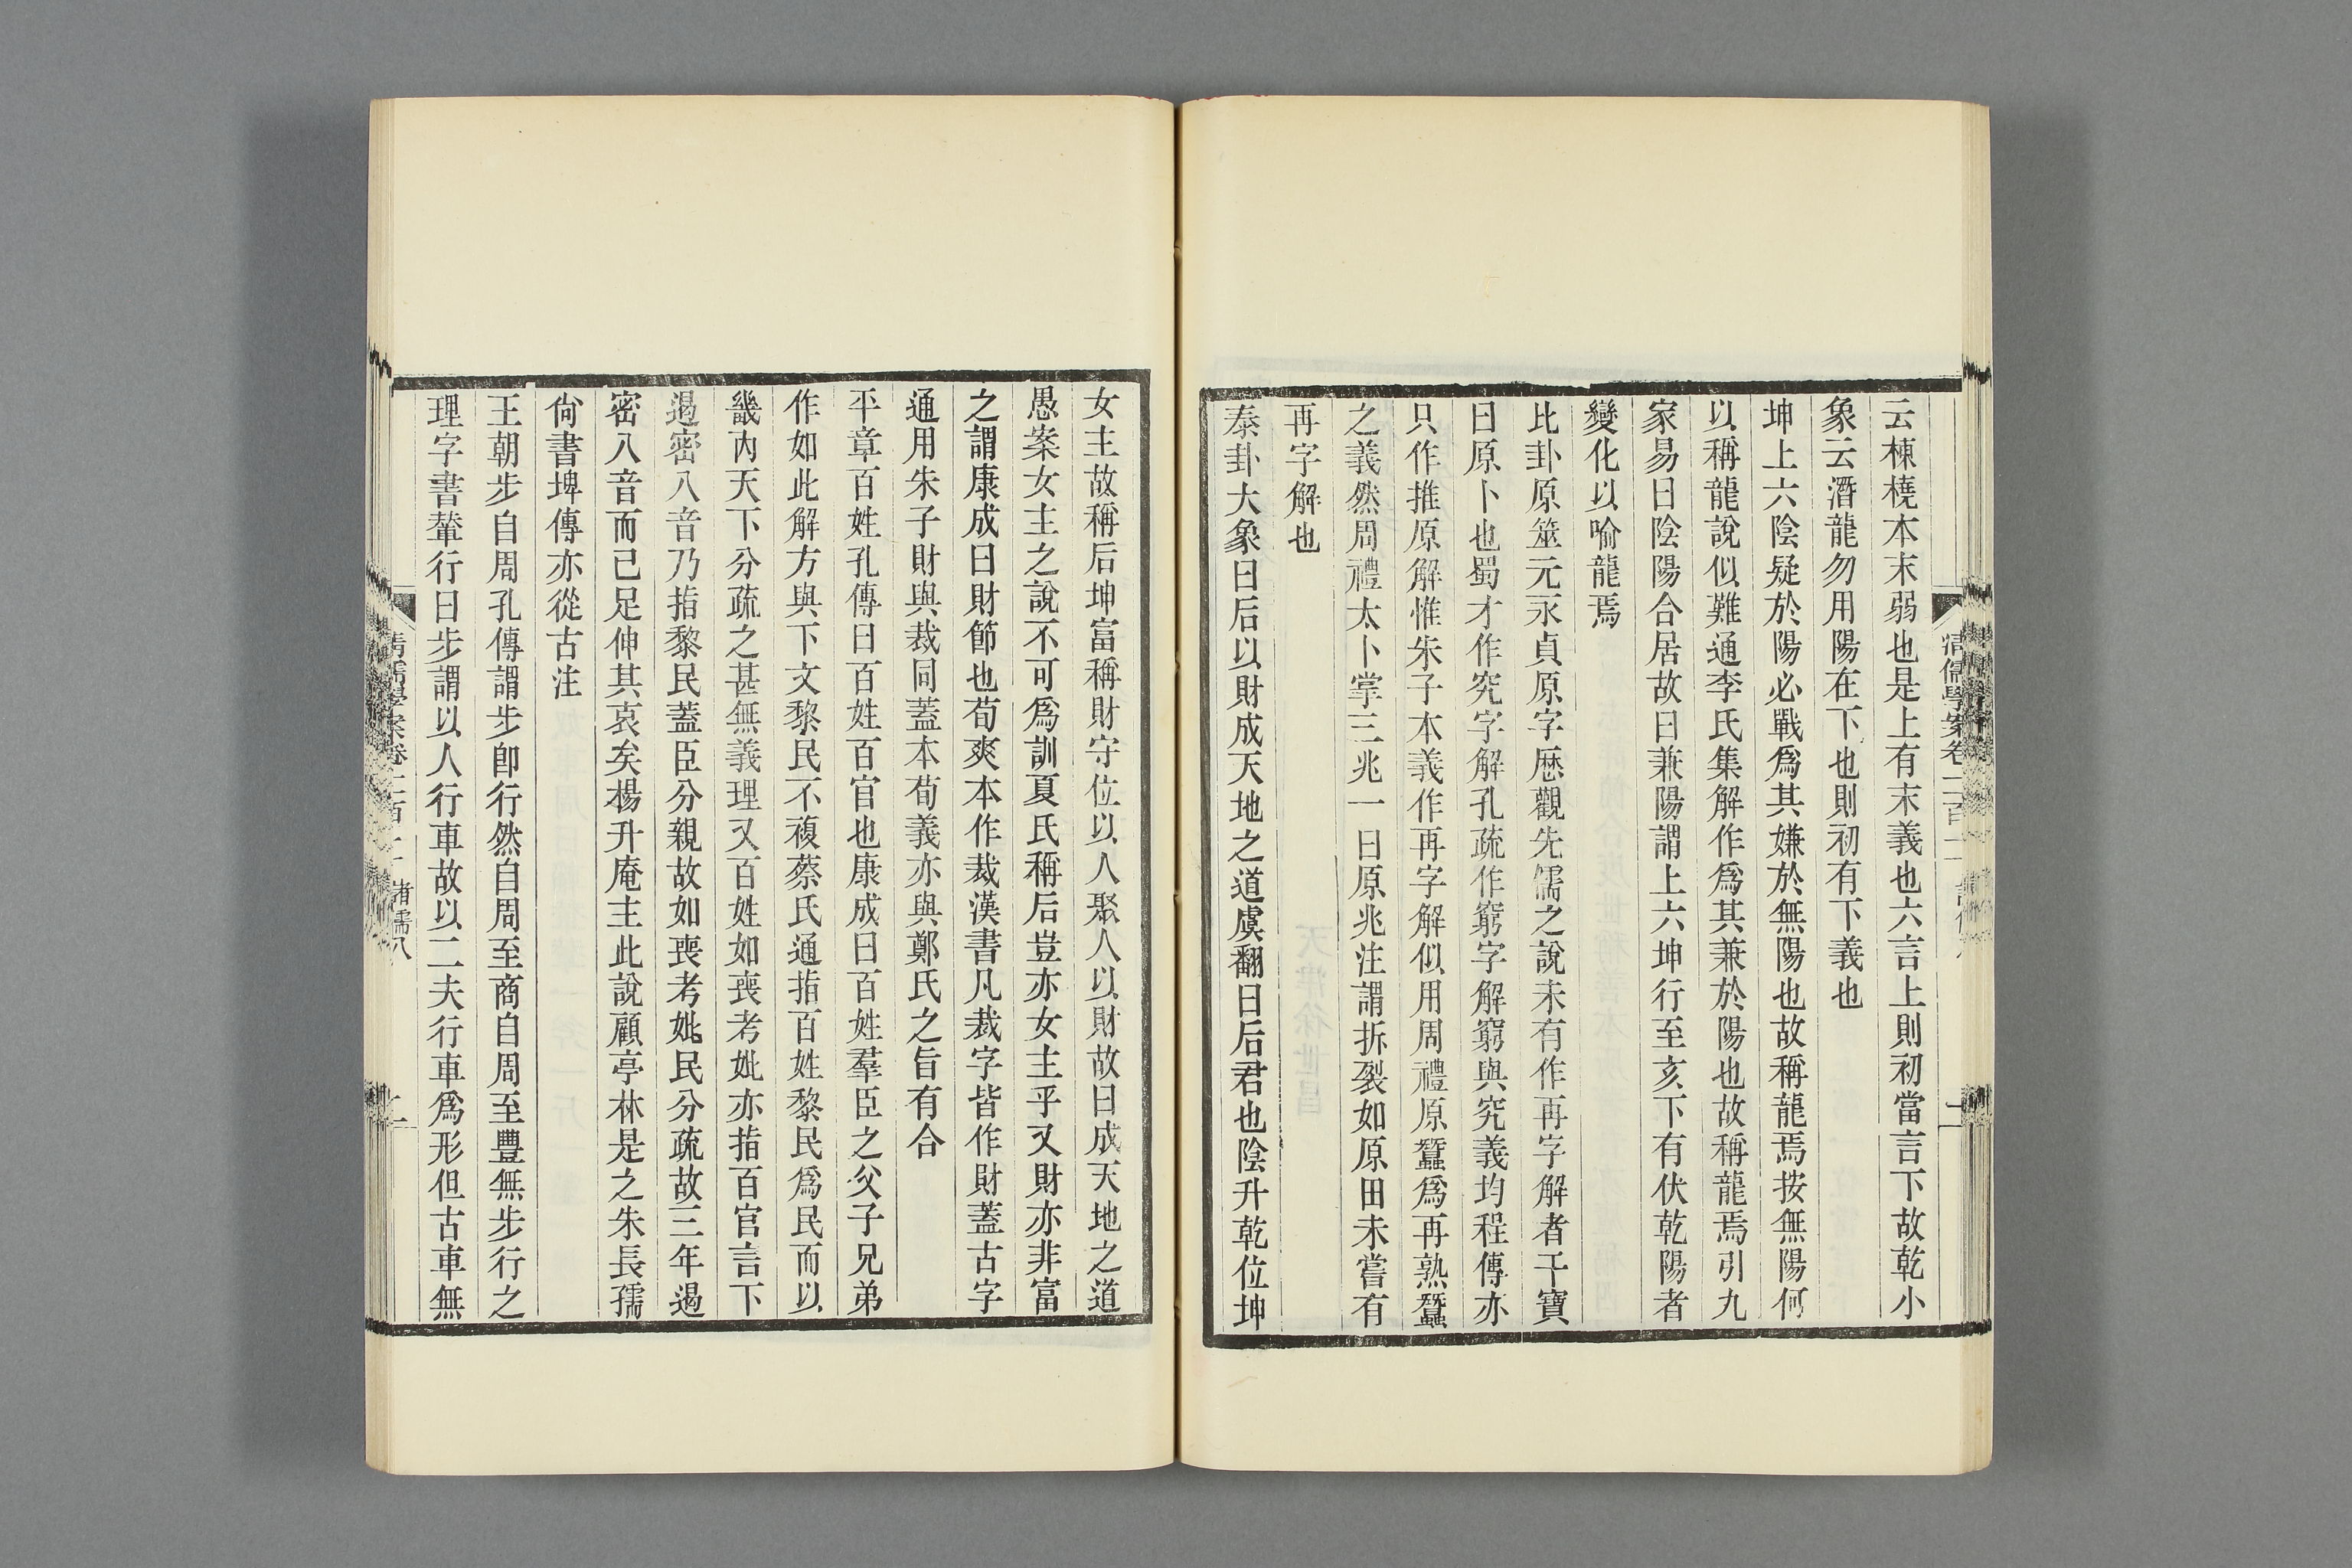 云棟橈本末弱也是上有末義也六言上則初當言下故乾小
象云潛龍勿用陽在下也則初有下義也
坤上六陰疑於陽必戰爲其嫌於無陽也故稱龍焉按無陽何
以稱龍說似難通李氏集解作爲其兼於陽也故稱龍焉引九
家易曰陰陽合居故曰兼陽謂上六坤行至亥下有伏乾陽者
變化以喻龍焉
比卦原筮元永貞原字歷觀先儒之說未有作再字解者干寶
曰原卜也蜀才作究字解孔疏作窮字解窮與究義均程傳亦
只作推原解惟朱子本義作再字解似用周禮原蠶爲再熟蠶
之義然周禮太卜掌三兆一曰原兆注謂拆裂如原田未嘗有
再字解也
泰卦大象曰后以財成天地之道虞翻曰后君也陰升乾位坤
女主故稱后坤富稱財守位以人聚人以財故曰成天地之道
愚案女主之說不可爲訓夏氏稱后豈亦女主乎又財亦非富
之謂康成曰財節也荀爽本作裁漢書凡裁字皆作財蓋古字
通用朱子財與裁同蓋本荀義亦與鄭氏之旨有合
平章百姓孔傳曰百姓百官也康成曰百姓羣臣之父子兄弟
作如此解方與下文黎民不複蔡氏通指百姓黎民爲民而以
畿內天下分疏之甚無義理又百姓如喪考妣亦指百官言下
遏密八音乃指黎民蓋臣分親故如喪考妣民分疏故三年遏
密八音而已足伸其哀矣楊升庵主此說顧亭林是之朱長孺
尙書埤傳亦從古注
王朝步自周孔傳謂步卽行然自周至商自周至豐無步行之
理字書輦行曰步謂以人行車故以二夫行車爲形但古車無
清儒學案卷二百二 諸儒八 二